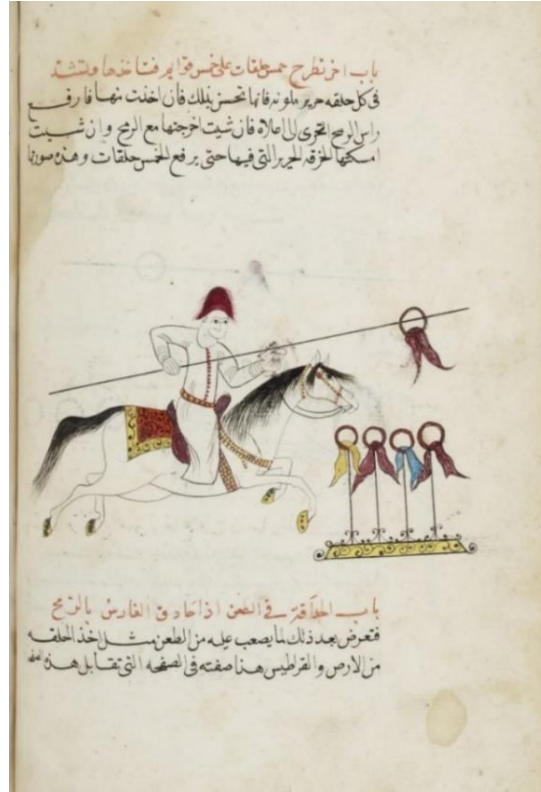 باب اخر تطرح خمس حلقات على خمس قوايم فتاخذها وتشد
فى كل حلقه حرير ملونه فانها تحسن بذلك فان اخذت منها فارفع
راس الرمح الى اعلاه فان شيت اخرجتها مع الرمح وان شيت
امسكتها الخرقه الحرير التى فيها حتى يرفع الخمس حلقات وهذه صورتها
باب الحذاقة فى الطعن اذا حاذق الفارس بالرمح
فتعرض بعد ذلك لما يصعب عليه من الطعن مثل اخذ الحلقه
من الارض والقراطيس هنا صفته فى الصفحه التى تقابل هذه